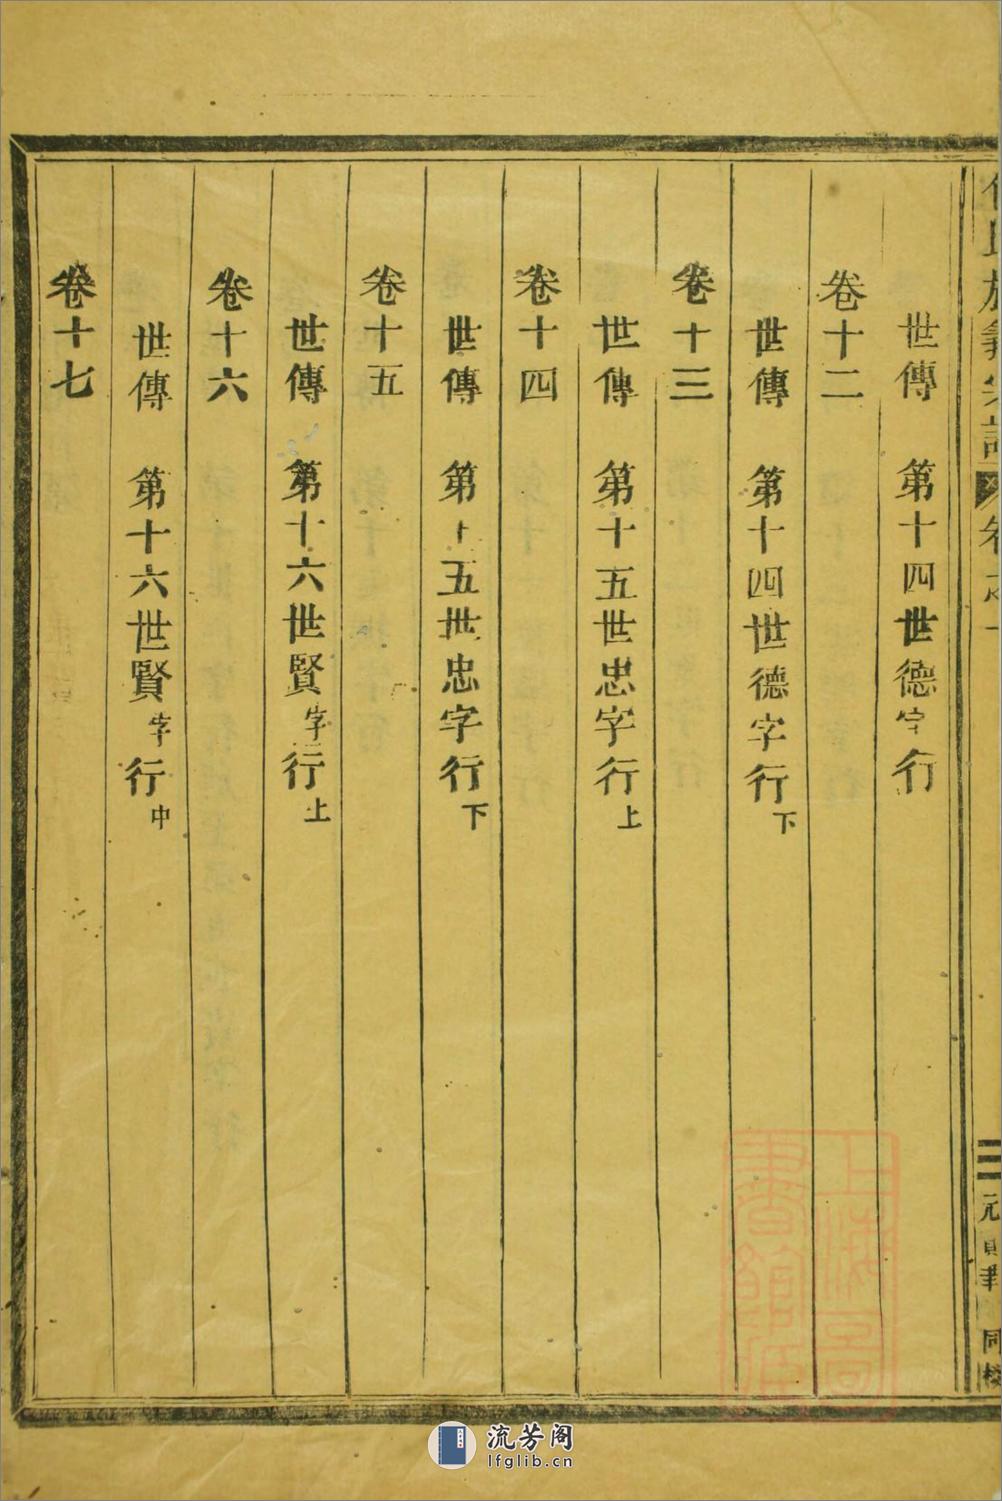 世傳 第十四世德字行
卷十二
世傳 第十四世德字行下
卷十三
世傳 第十五世忠字行上
卷十四
世傳 第十五世忠字行下
卷十五
世傳 第十六世賢字行上
卷十六
世傳 第十六世賢字行中
卷十七
氏族義宗譜 卷之一
三 元 同校
上海圖書館藏
流芳阁
lfglib.cn